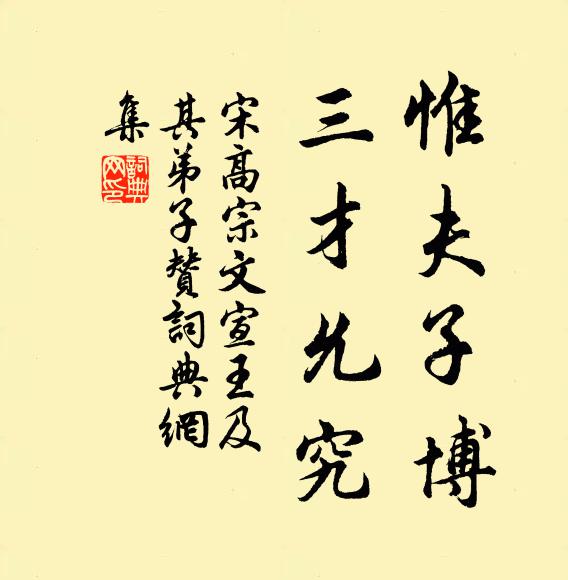 惟夫子博
三才允究
宋高宗文宣王及
其弟子贊詞典網
集
詞典網印